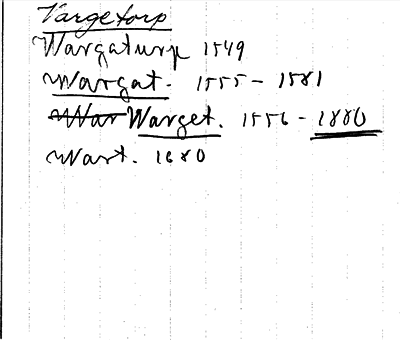 Vargetorp
Wargaturp 1549
Wargat. 1555 - 1581
War Warget. 1556 - 1880
Wart. 1680